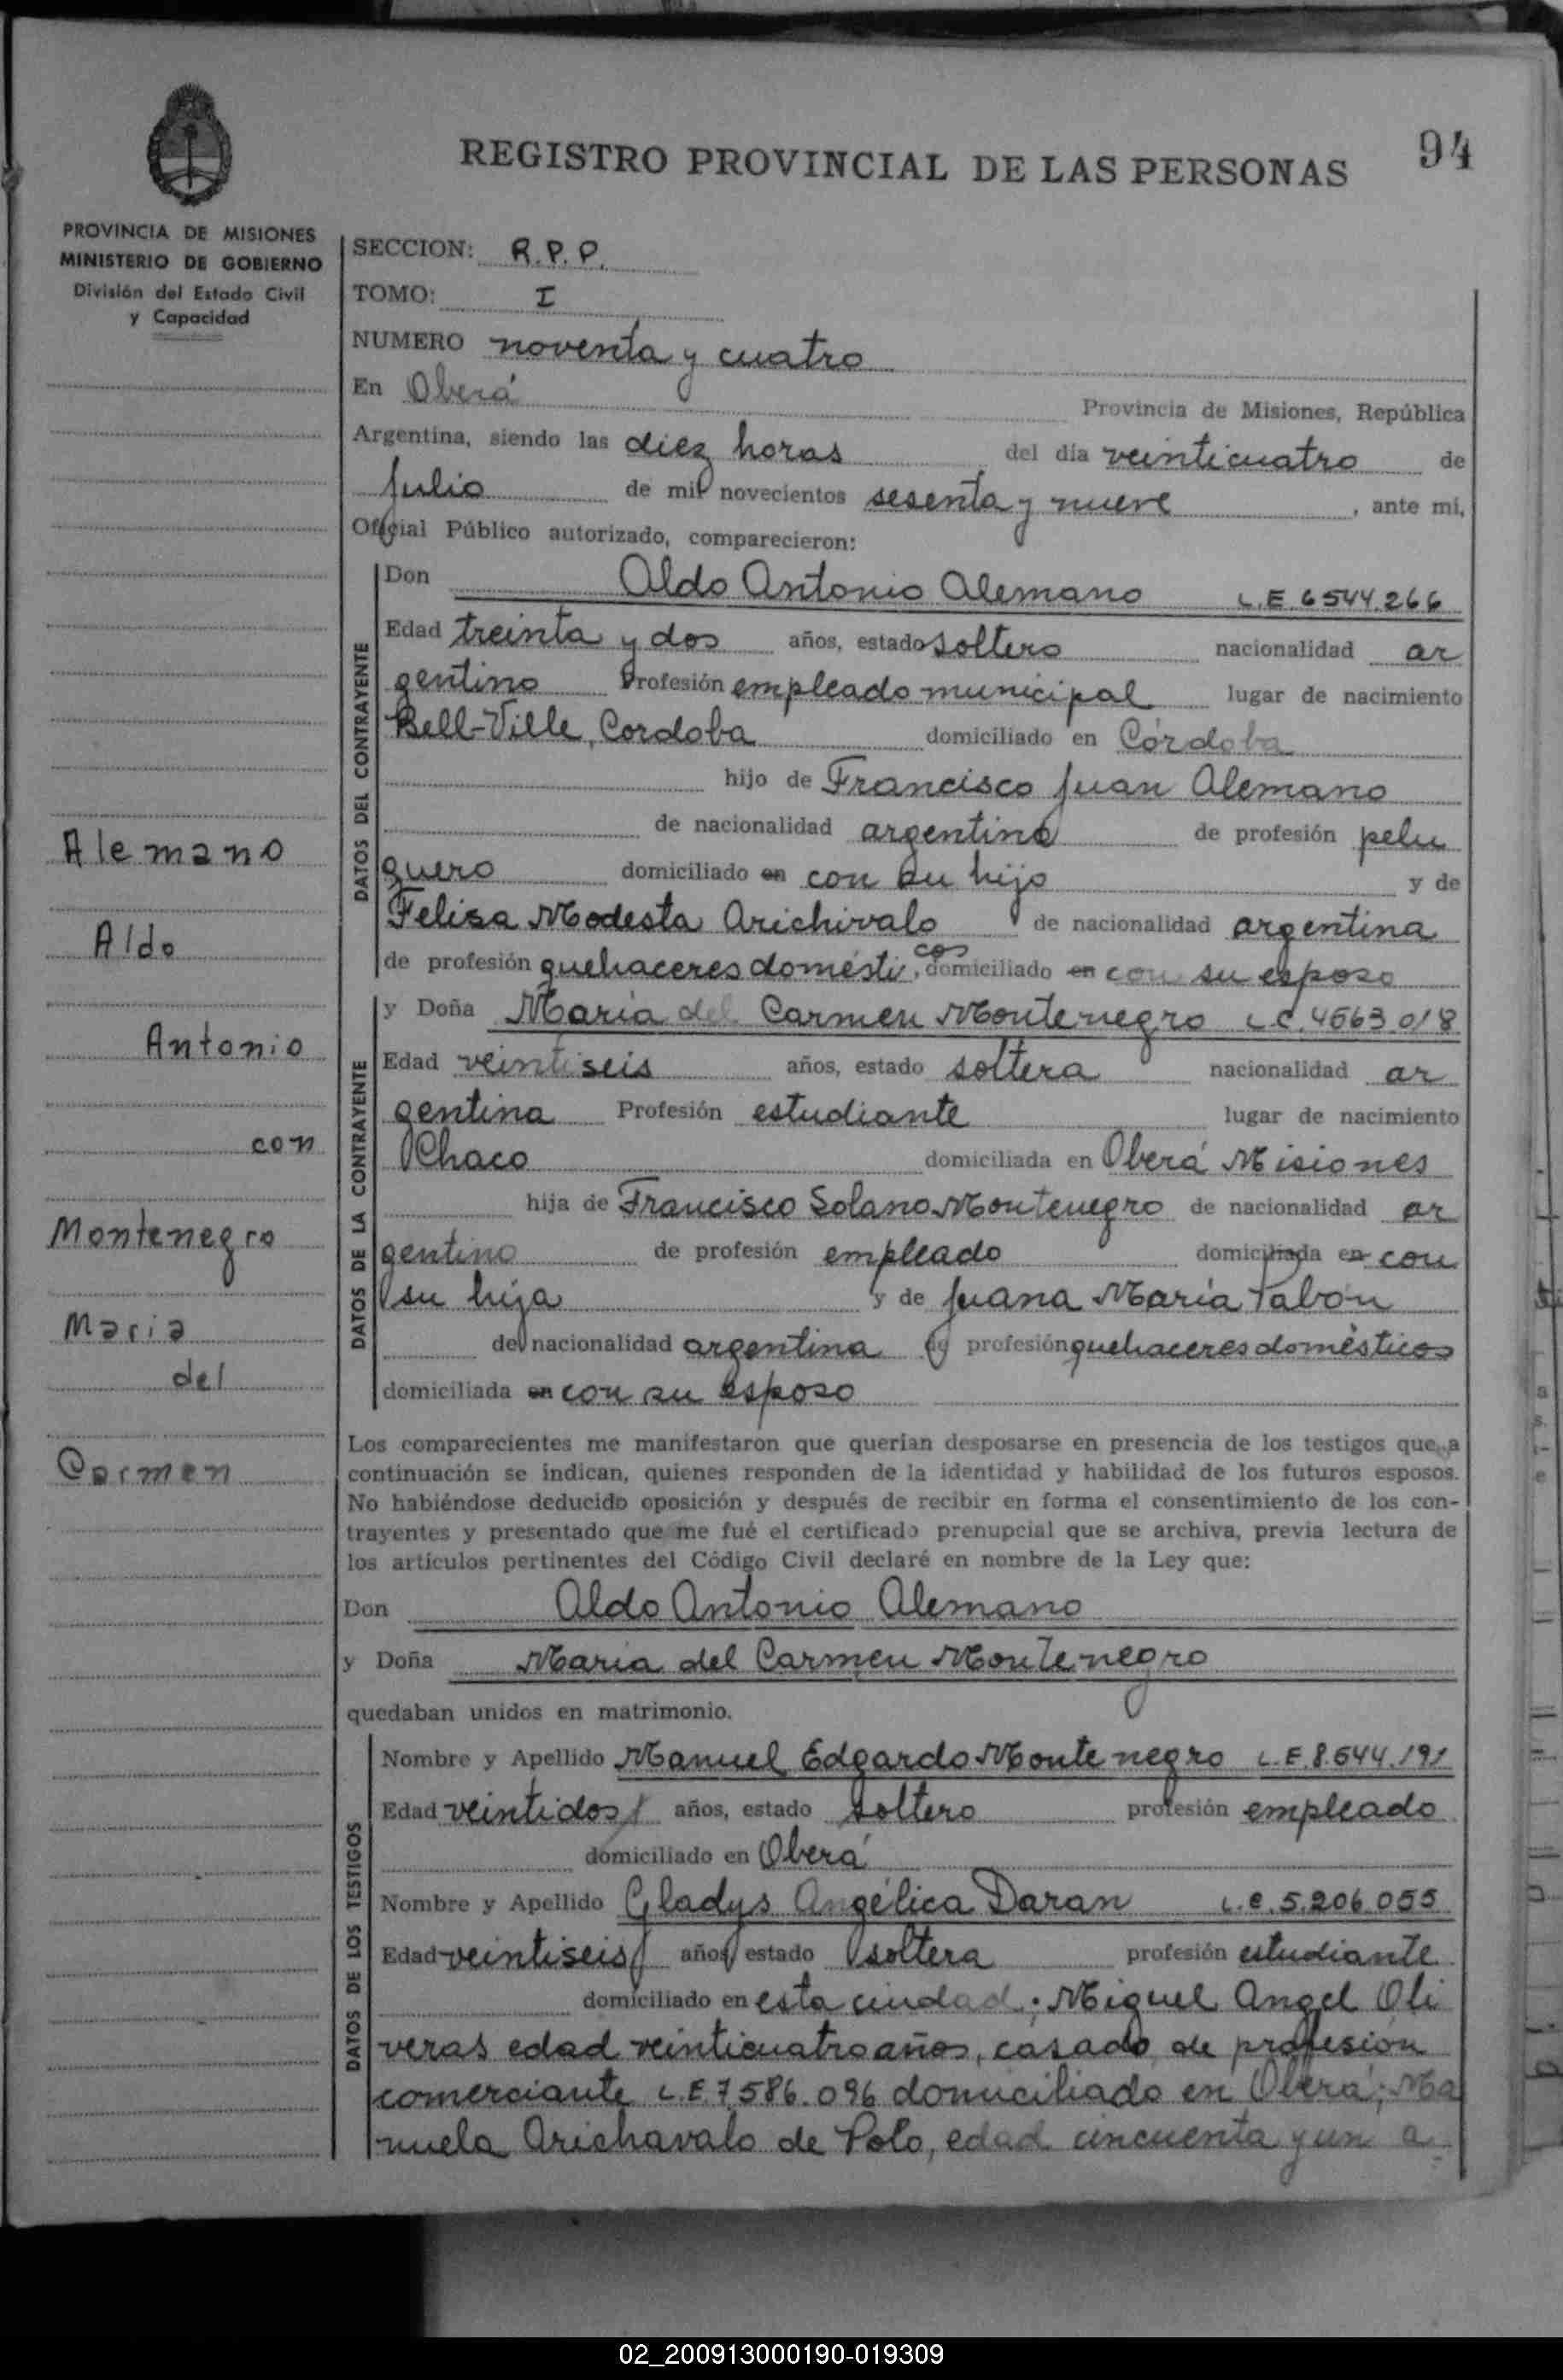 REGISTRO PROVINCIAL DE LAS PERSONAS 94
PROVINCIA DE MISIONES
MINISTERIO DE GOBIERNO
División del Estado Civil
y Capacidad
SECCION: R.P.P.
TOMO: I
NUMERO noventa y cuatro
En Oberá Provincia de Misiones, República
Argentina, siendo las diez horas del día veinticuatro de
Julio de mil novecientos sesenta y nueve, ante mi,
Oficial Público autorizado, comparecieron:
DATOS DEL CONTRAYENTE
Don Aldo Antonio Alemano L.E 6544.266
Edad treinta y dos años, estado soltero nacionalidad ar
gentino Profesión empleado municipal lugar de nacimiento
Bell-Ville, Cordoba domiciliado en Córdoba
hijo de Francisco Juan Alemano
de nacionalidad argentino de profesión pelu
quero domiciliado en con su hijo y de
Felisa Modesta Arichivalo de nacionalidad argentina
de profesión quehaceres domésticos, domiciliado en con su esposo
DATOS DE LA CONTRAYENTE
y Doña María del Carmen Montenegro L.C. 4563.018
Edad veintiseis años, estado soltera nacionalidad ar
gentina Profesión estudiante lugar de nacimiento
Chaco domiciliada en Oberá Misiones
hija de Francisco Solano Montenegro de nacionalidad ar
gentino de profesión empleado domiciliada en con
su hija y de Juana María Pabón
de nacionalidad argentina de profesión quehaceres domésticos
domiciliada en con su esposo
Los comparecientes me manifestaron que querían desposarse en presencia de los testigos que a
continuación se indican, quienes responden de la identidad y habilidad de los futuros esposos.
No habiéndose deducido oposición y después de recibir en forma el consentimiento de los con-
trayentes y presentado que me fué el certificado prenupcial que se archiva, previa lectura de
los artículos pertinentes del Código Civil declaré en nombre de la Ley que:
Don Aldo Antonio Alemano
y Doña María del Carmen Montenegro
quedaban unidos en matrimonio.
DATOS DE LOS TESTIGOS
Nombre y Apellido Manuel Edgardo Montenegro L.E. 8.544.191
Edad veintidos años, estado soltero profesión empleado
domiciliado en Oberá
Nombre y Apellido Gladys Angélica Daran L.C. 5.206.055
Edad veintiseis años, estado soltera profesión estudiante
domiciliado en esta ciudad; Miguel Angel Oli
veras edad veinticuatro años, casado de profesión
comerciante L.E. 7.586.096 domiciliado en Oberá; Ma
nuela Arichavalo de Polo, edad cincuenta y un a
Alemano
Aldo
Antonio
con
Montenegro
Maria
del
Carmen
02_200913000190-019309